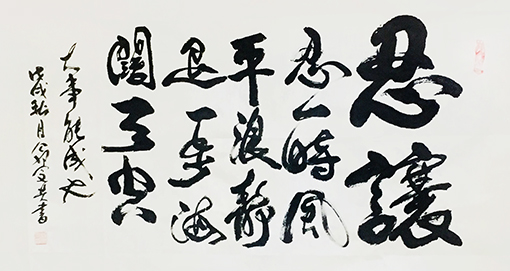 忍讓
忍一時風
平浪靜
退一步海
闊天空
大事能成
戊戌秋月書